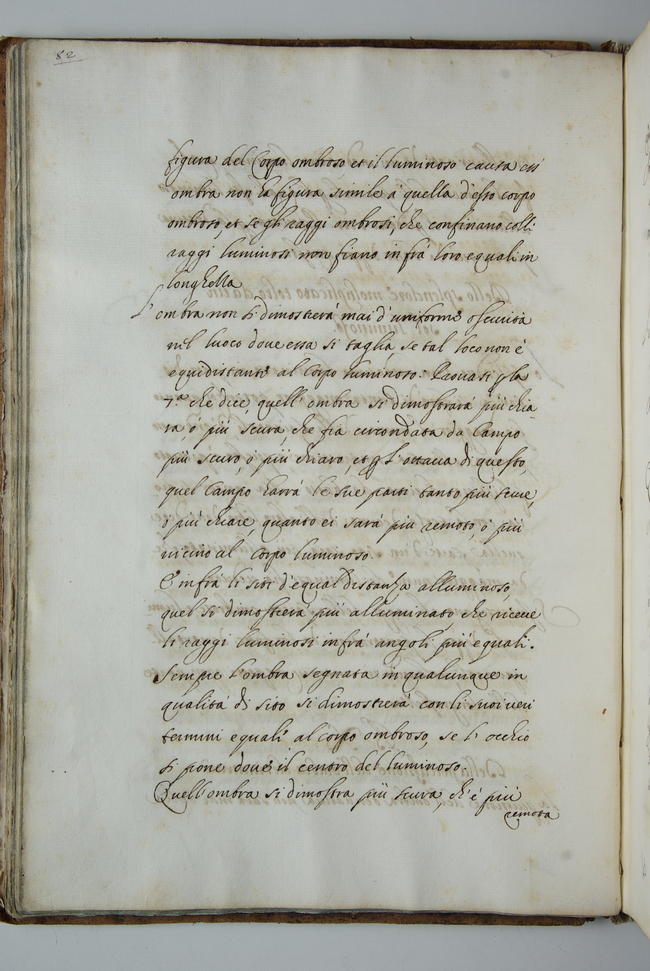 82
figura del Corpo ombroso et il luminoso causa cui
ombra non ha figura simile a' quella d'esso corpo
ombroso, et se gli raggi ombrosi, che confinano colli
raggi luminosi non fiano infrà loro equali in
longhezza
L'ombra non si dimostrerá mai d'uniforme oscurità
nel luoco dove essa si taglia, se tal loco non é
equidistante al Corpo luminoso: Provasi p la
7.ª che dice, quell'ombra si dimostrará piú chia
ra, ó piú scura, che fia circondata da Campo
piú scuro ó piú chiaro, et p l'ottava di questo,
quel Campo havrá le sue parti tanto piú scure,
ó piú chiare, quanto ei sará piu remoto, ó piú
vicino al Corpo luminoso.
E' infrá li siti d'equal distanza al luminoso,
quel si dimostrerá piú alluminato, che riceve
li raggi luminosi infrá angoli piú equali.
Sempre l'ombra segnata in qualunque in
qualitá di sito si dimostrerá con li suoi veri
termini equali al corpo ombroso, se l'occhio
si pone dov'é il centro del luminoso.
Quell'ombra si dimostra piú scura, ch'é piú
remota